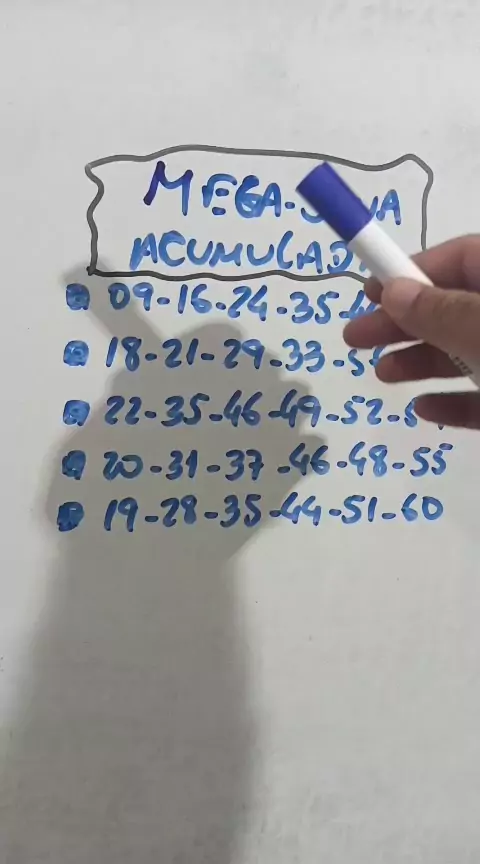 MEGA-
ACUMULADA
09-16-24-35-
18-21-29-33-5
22-35-46-49-52-5
20-31-37-46-48-55
19-28-35-44-51-60